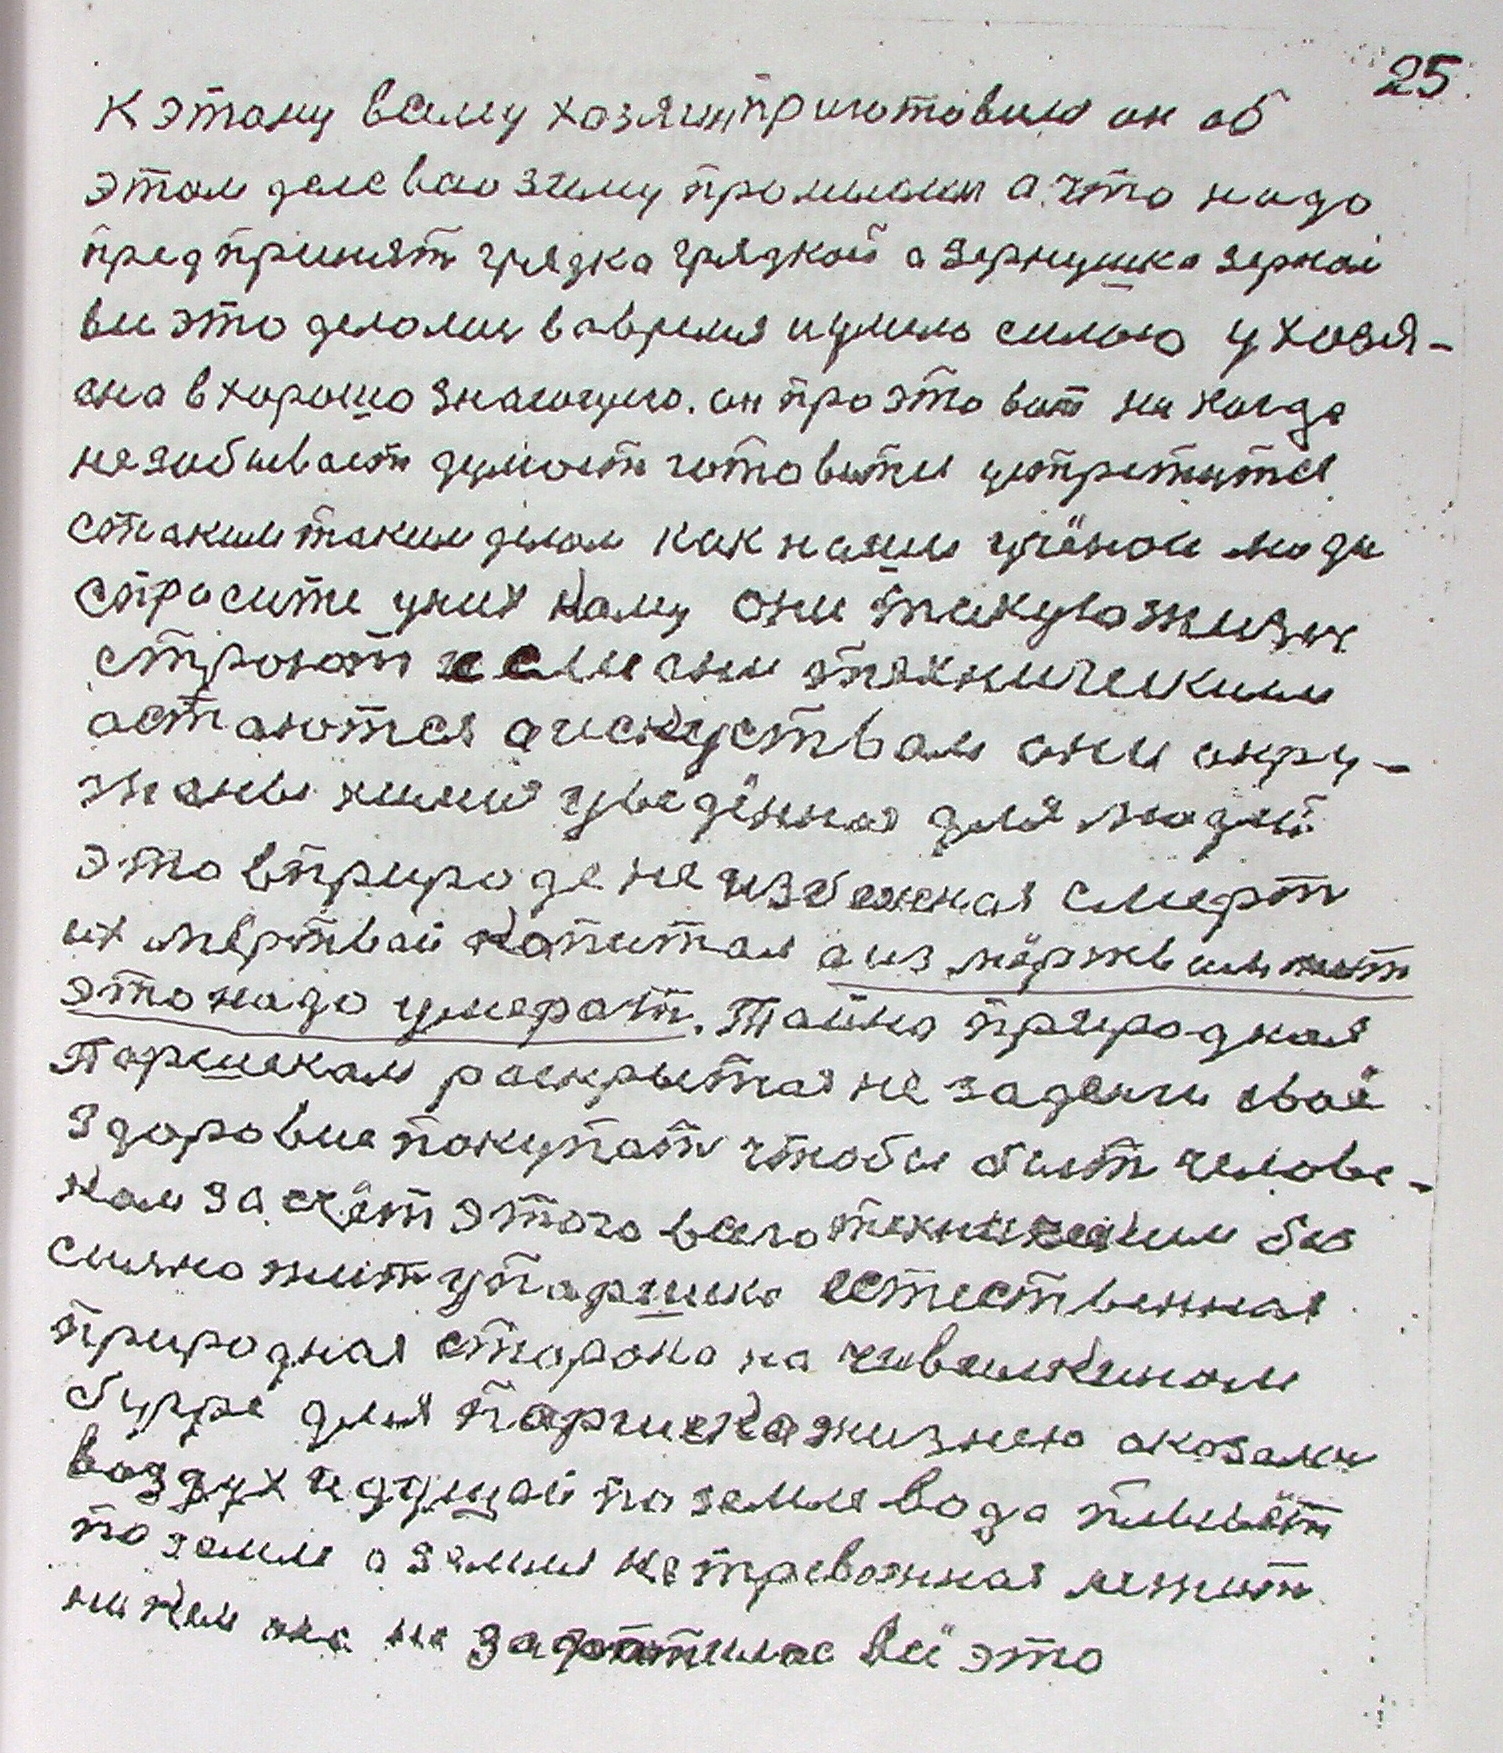 25
к этому всему хозяин приготовился он об
этом деле всю зиму промышлял а что надо
предпринят грядка грядкой а зернушко зерном
вы это делали вовремя и цымью силою у хозя-
ина в хорошо знающего. он про это вот ни когда
не забывает думает готовится устретится
с таким таким делом как наши учёнои люди
спросите у них кому они такую жизнь
строют если они техническим
астаются а искуством они окру-
жены химия уведённая для людей
это в природе не избежная смерт
их мёртвай капитал а из мёртвым жит
это надо умерат. Тайна природная
Паршекам раскрытая не за денги своё
здоровие покупат чтобы быт челове-
кам за счёт этого всего техническим бы
силно жит у Паршека естественная
природная сторона на чивилкином
бугре для Паршека жизнею оказали
воздух идущай по земле вода плывёт
по земле а земля не тревожная лежит
ни кем она не захватилас всё это